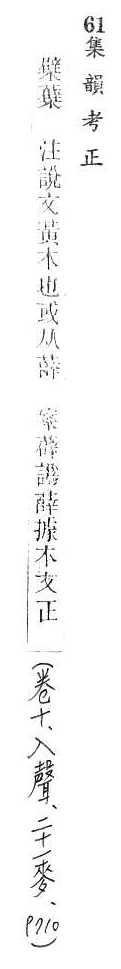 61集韻考正
檗蘗 注說文黃木也或从薜 案薜譌薛據本文正
(卷十、入聲、二十一麥、P710)